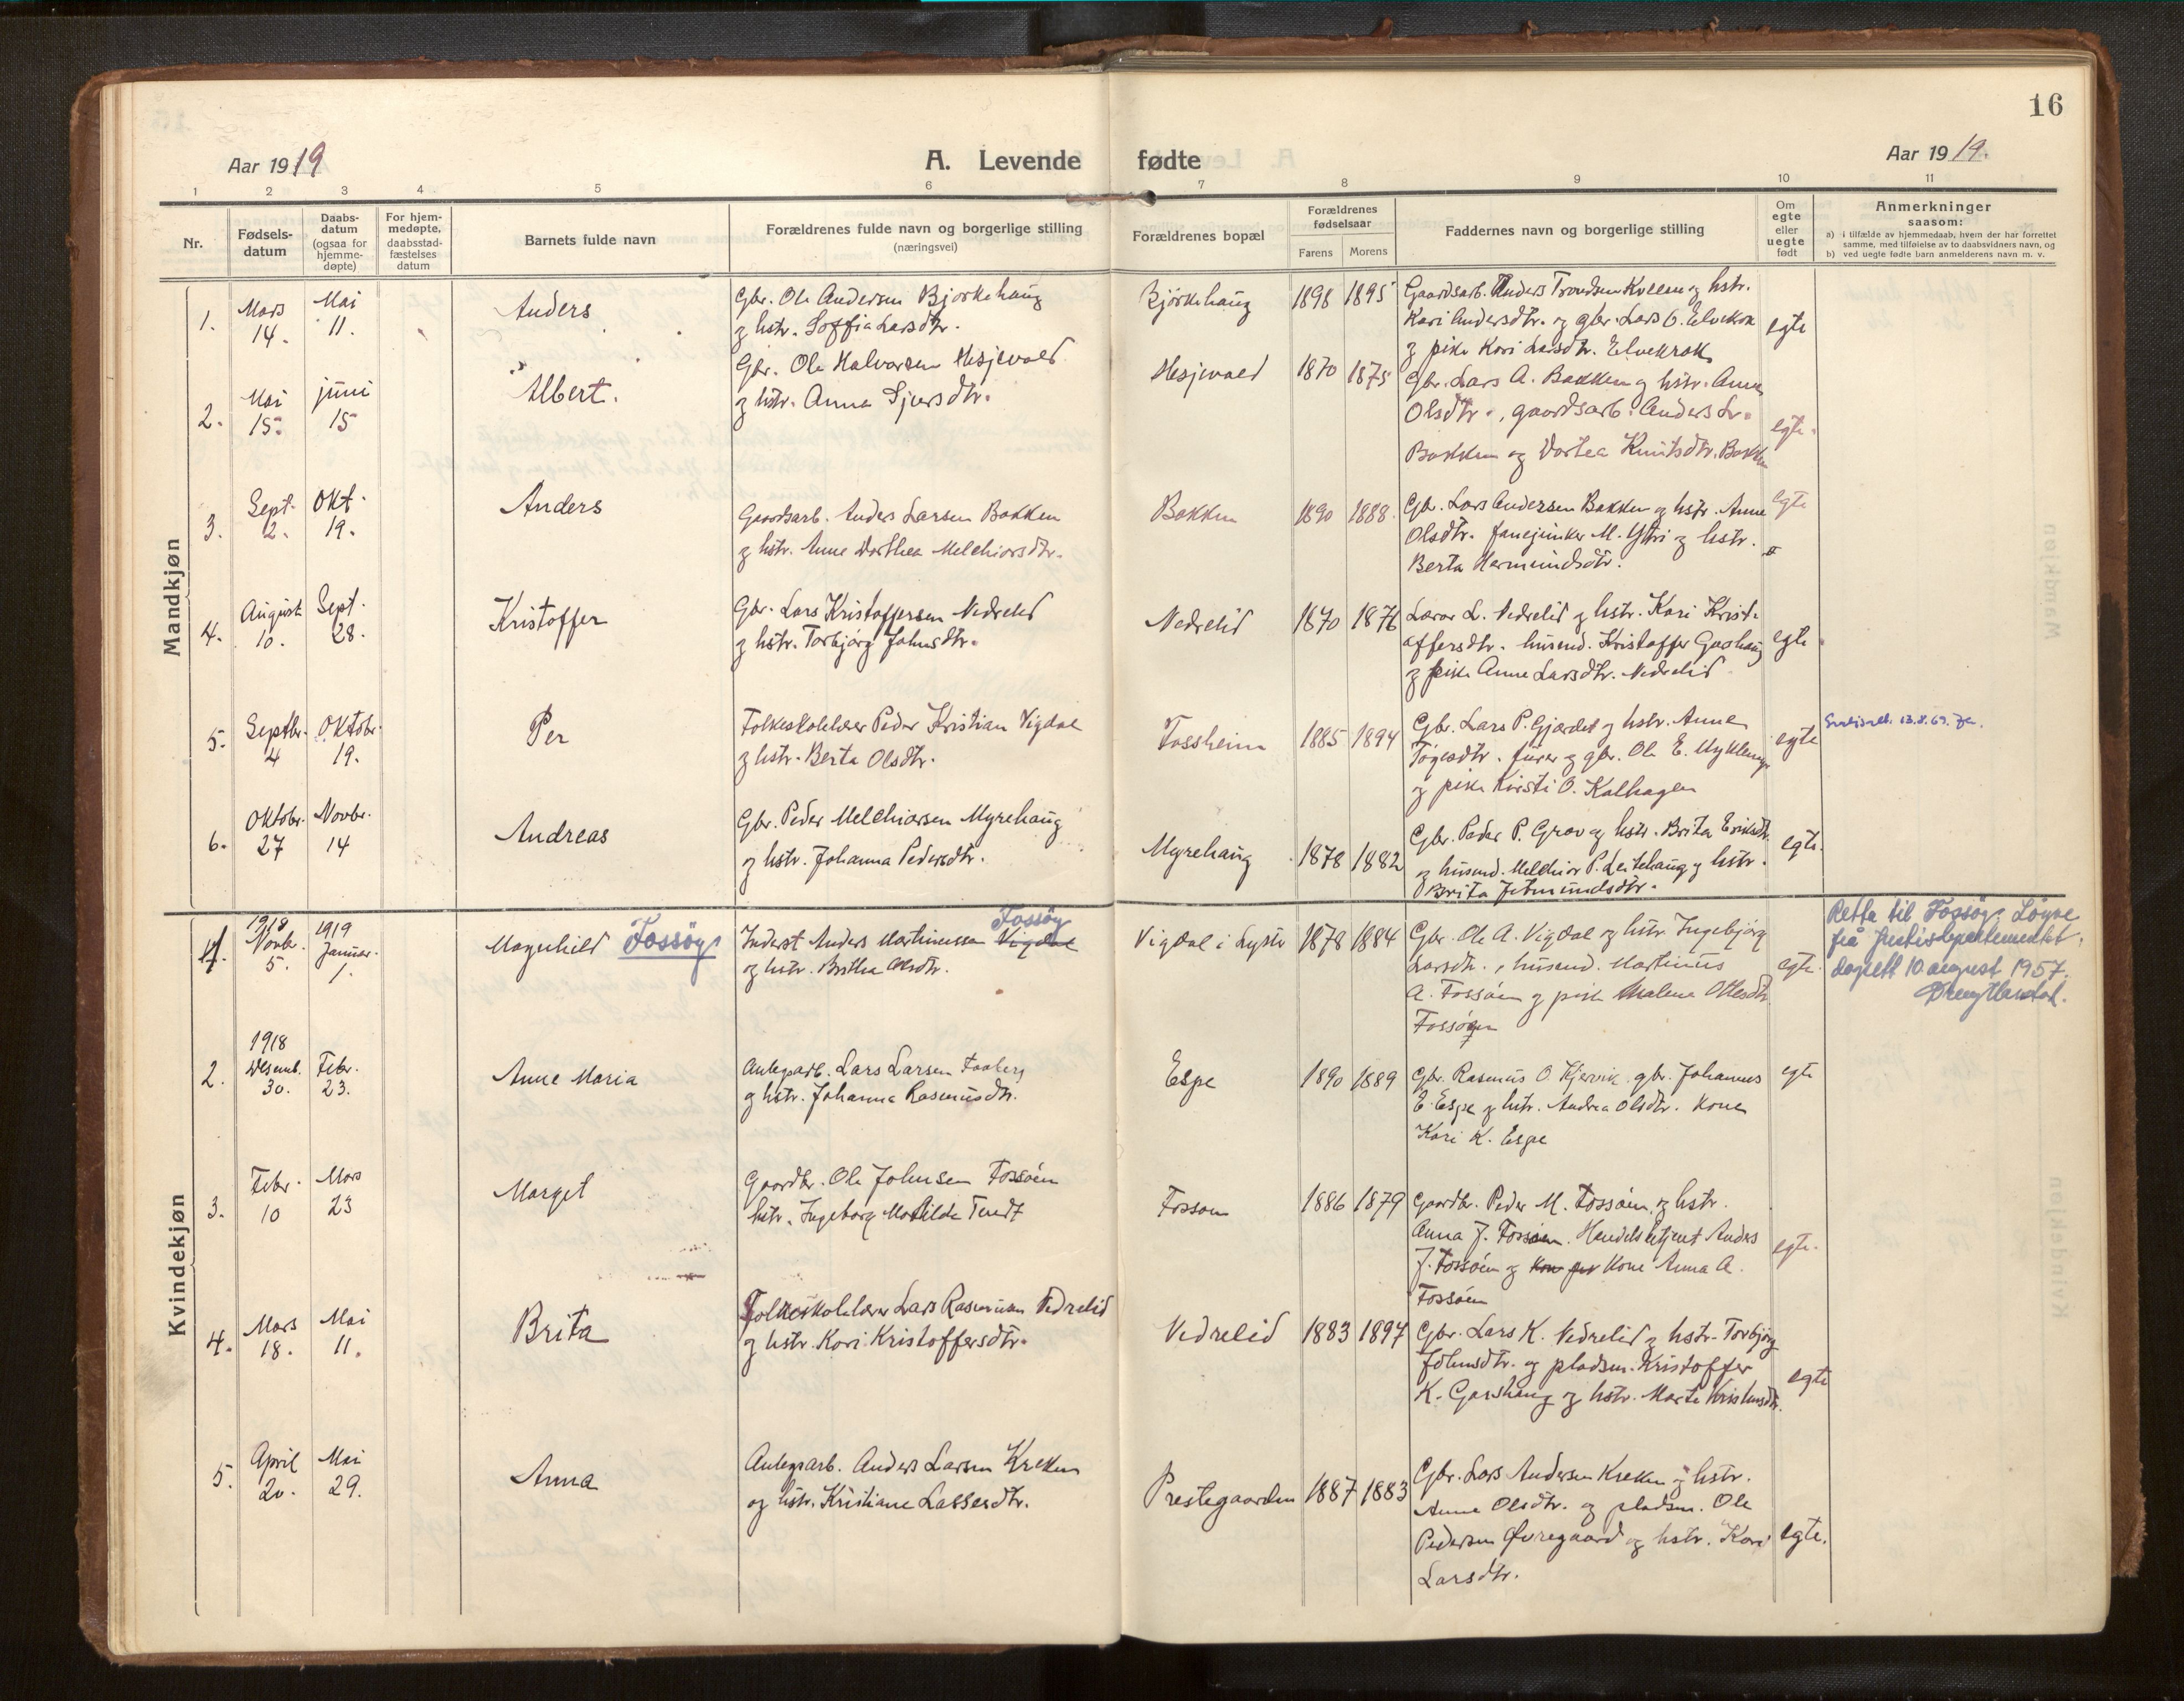 16
Aar 1919
A. Levende fødte
Aar 1919.
1 2 3 4 5 6 7 8 9 10 11
Nr.
Fødsels-
datum
Daabs-
datum
(ogsaa for
hjemme-
døpte)
For hjem-
medøpte,
daabsstad-
fæstelses
datum
Barnets fulde navn
Forældrenes fulde navn og borgerlige stilling
(næringsvei)
Forældrenes bopæl
Forældrenes
fødselsaar
Farens Morens
Faddernes navn og borgerlige stilling
Om
egte
eller
uegte
født
Anmerkninger
saasom:
a) i tilfælde av hjemmedaab, hvem der har forrettet
samme, med tilføielse av to daabsvidners navn, og
b) ved uegte fødte barn anmelderens navn m. v.
Mandkjøn
1. Mars 14. Mai 11. Anders
Gbr. Ole Andersen Bjørkehaug
og hstr. Soffia Larsdtr.
Bjørkehaug 1898 1895
Gaardsarb. Anders Trondsen Kveen og hstr.
Kari Andersdtr. og gbr. Lars O. Elvekrok
og pike Kari Larsdtr. Elvekrok
egte
2. Mai 15. juni 15 Albert.
Gbr. Ole Halvorsen Hesjevold
og hstr. Anna Sjursdtr.
Hesjevold 1870 1875
Gbr. Lars A. Bakken og hstr. Anna
Olsdtr., gaardsarb. Anders Lr.
Bakken og Dortea Knutsdtr. Bakken
egte.
3. Sept. 2. Okt. 19. Anders
Gaardsarb. Anders Larsen Bakken
og hstr. Anne Dorthea Melchiorsdtr.
Bakken 1890 1888.
Gbr. Lars Andersen Bakken og hstr. Anne
Olsdtr. fanejunker M. Ytri og hstr.
Berta Hermundsdtr.
egte
4. August 10. Sept. 28. Kristoffer
Gbr. Lars Kristoffersen Nedrelid
og hstr. Torbjørg Johnsdtr.
Nedrelid 1870 1876
Lærer L. Nedrelid og hstr. Kari Krist-
offersdtr. husmd. Kristoffer Garshaug
og pike Anne Larsdtr. Nedrelid
egte
5. Septbr. 4 Oktobr. 19. Per
Folkeskolelærer Peder Kristian Vigdal
og hstr. Berta Olsdtr.
Fossheim 1885 1894
Gbr. Lars P. Gjærdet og hstr. Anna
furer og gbr. Ole E. Myklemyr
og pike Kirsti O. Kalhagen
egte
13.8.69.
6. Oktobr. 27 Novbr. 14 Andreas
Gbr. Peder Melchiorsen Myrehaug
og hstr. Johanna Pedersdtr.
Myrehaug 1878 1882
Gbr. Peder P. Grov og hstr. Brita Eriksdtr.
og husmd. Melchior P. Leirhaug og hstr.
Brita Jetmundsdtr.
egte.
Kvindekjøn
1. 1918 Novbr. 5. 1919 Januar. 1. Magnhild Fossøy
Inderst Anders Martinussen Vigdal Fossøy
og hstr. Brithe Olsdtr.
Vigdal i Lyste 1878 1884
Gbr. Ole A. Vigdal og hstr. Ingebjørg
Larsdtr., husmd. Martinus
A. Fossøen og pike Malena Ottesdtr.
Fossøen
egte.
Retta til Fossøy. Løyve
frå Justisdepartementet,
dagsett 10. august 1957.
2. 1918 Desemb. 30. Febr. 23. Anne Maria
Anlegsarb. Lars Larsen Faaberg
og hstr. Johanna Rasmusdtr.
Espe 1890 1889
Gbr. Rasmus O. Kjervik gbr. Johannes
E. Espe og hstr. Andrea Olsdtr. Kone
Kari K. Espe
egte
3. Febr. 10 Mars 23 Marget
Gaardbr. Ole Johnsen Fossøen
hstr. Ingeborg Matilde Tendt
Fossøen 1886 1879
Gaardbr. Peder M. Fossøen, og hstr.
Anna J. Fossøen. Handelsbetjent Anders
J. Fossøen og Kone Anna A.
Fossøen
egte.
4. Mars 18. Mai 11. Brita
Folkeskolelærer Lars Rasmusen Nedrelid
og hstr. Kari Kristoffersdtr.
Nedrelid 1883 1897
Gbr. Lars K. Nedrelid og hstr. Torbjørg
Johnsdtr. og pladsm. Kristoffer
K. Garshaug og hstr. Marte Kristensdtr.
egte
5. April 20. Mai 29. Anna
Anlegsarb. Anders Larsen Kreken
og hstr. Kristiane Lassesdtr.
Prestegaarden 1887 1883
Gbr. Lars Andersen Kreken og hstr.
Anna Olsdtr. og pladsm. Ole
Pedersen Øvregaard og hstr. Kari
Larsdtr.
egte.